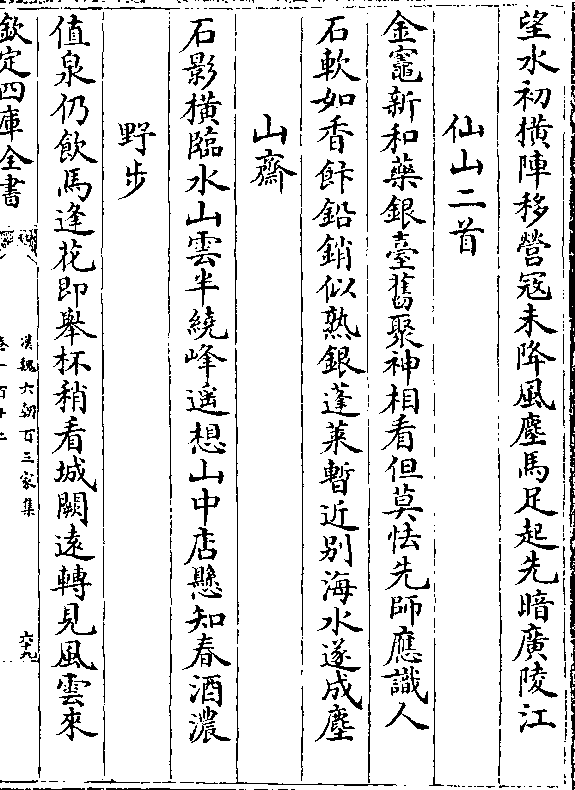 望水初橫陣移營寇未降風塵馬足起先暗廣陵江
仙山二首
金竈新和藥銀臺舊聚神相看但莫怯先師應識人
石軟如香飰鉛銷似熟銀蓬萊暫近别海水遂成塵
山齋
石影橫臨水山雲半繞峰遥想山中店懸知春酒濃
野步
值泉仍飲馬逢花即舉杯稍看城闕遠轉見風雲來
欽定四庫全書
漢魏六朝百三家集
六十九